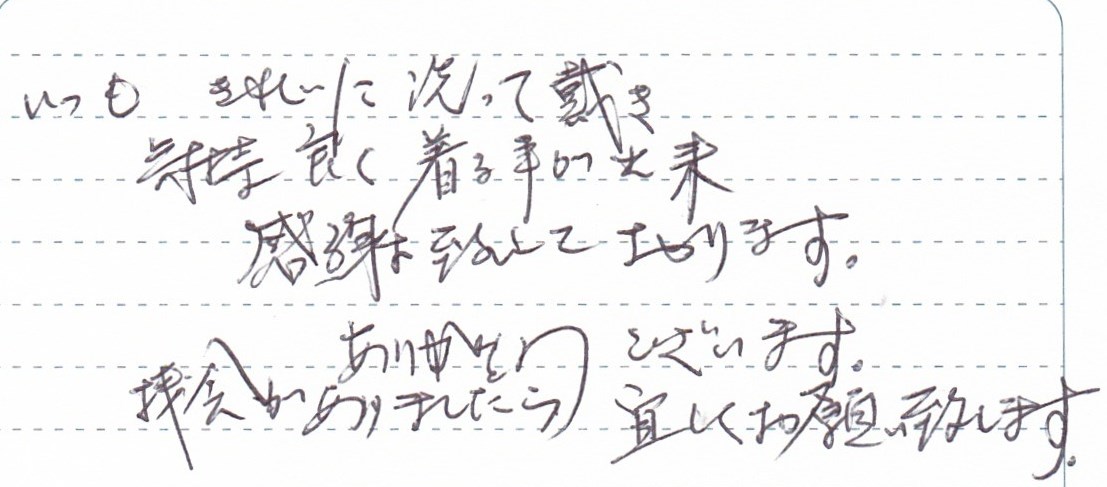 いつも きれいに洗って戴き
気持良く着る事が出来
感謝致して おります。
ありがとう ございます。
機会がありましたら 宜しくお願い致します。